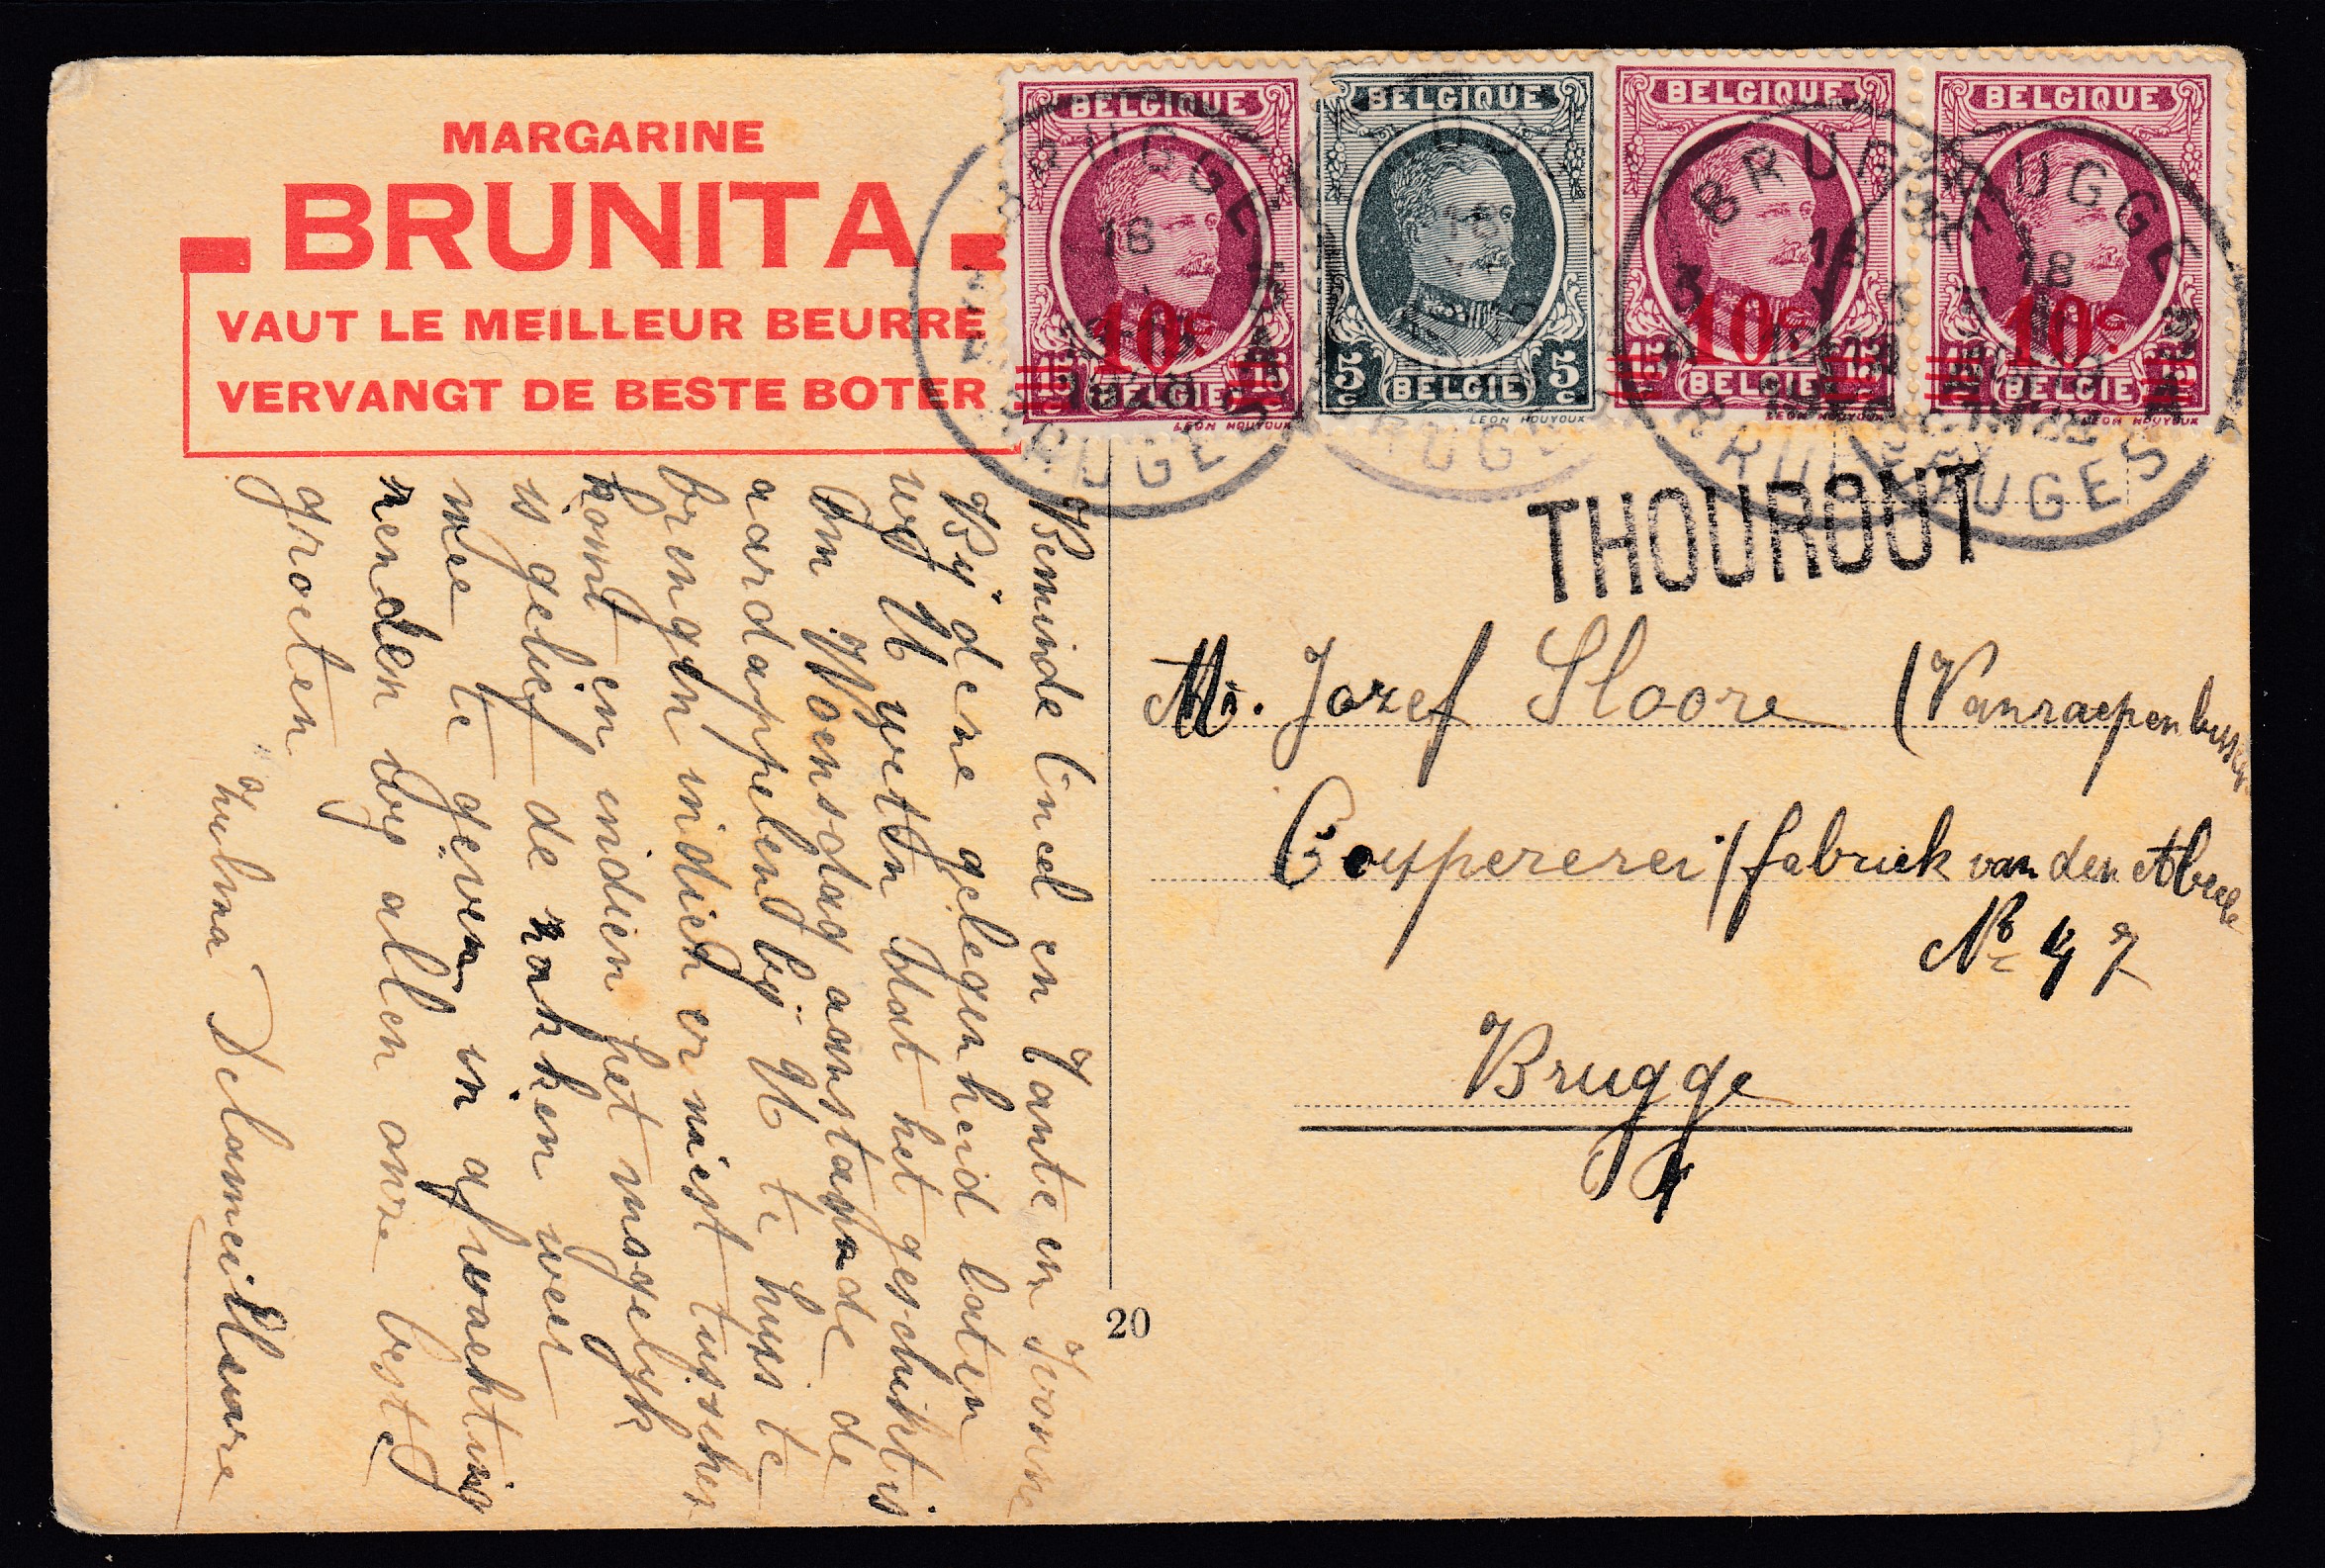 MARGARINE
BRUNITA
VAUT LE MEILLEUR BEURRE
VERVANGT DE BESTE BOTER
BELGIQUE
10c
15 BELGIE 15
LEON HOUYOUX
BELGIQUE
5c BELGIE 5c
LEON HOUYOUX
BELGIQUE
10c
15 BELGIE 15
LEON HOUYOUX
BELGIQUE
10c
15 BELGIE 15
LEON HOUYOUX
BRUGGE
18
BRUGES
BRUGGE
18
BRUGES
BRUGGE
18
BRUGES
THOUROUT
Beminde Oncel en Tante en Ivonne
By dene gelegenheid laten
wy U weten dat het geschikt is
om Woensdag aanstaande de
aardappelen by U te huis te
brengen indien er niest tusschen
komt en indien het mogelyk
is gelief de zakken weer
mee te geven in afwachting
zenden wy allen onze beste
groeten
Zulma Delameilleure
20
Mr. Jozef Sloore (Vanraepenbussche
fabriek van den Abeele
No 47
Brugge